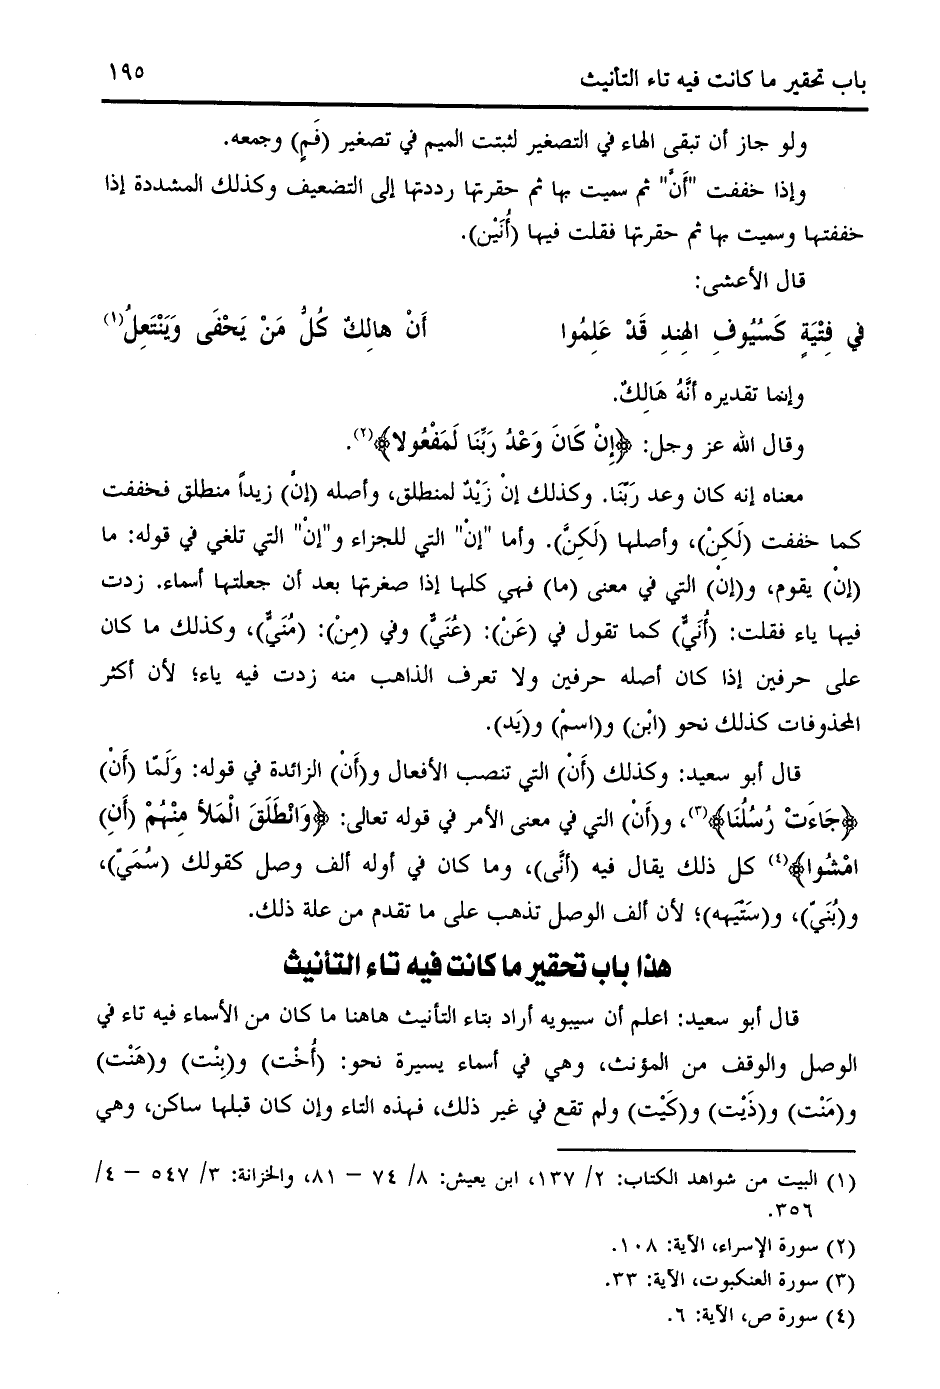 باب تحقير ما كانت فيه تاء التأنيث ١٩٥
ولو جاز أن تبقى الهاء في التصغير لثبتت الميم في تصغير (فَمٍ) وجمعه.
وإذا خففت "أَنَّ" ثم سميت بها ثم حقرتها رددتها إلى التضعيف وكذلك المشددة إذا
خففتها وسميت بها ثم حقرتها فقلت فيها (أُنَيْن).
قال الأعشى:
في فِتْيَةٍ كَسُيُوفِ الهِندِ قَدْ عَلِمُوا أَنْ هالِكٌ كُلُّ مَنْ يَحْفَى وَيَنْتَعِلُ(١)
وإنما تقديره أنَّهُ هَالِكٌ.
وقال الله عز وجل: ﴿إِنْ كَانَ وَعْدُ رَبِّنَا لَمَفْعُولا﴾(٢).
معناه إنه كان وعد رَبّنَا. وكذلك إنْ زَيْدٌ لمنطلق، وأصله (إنّ) زيداً منطلق فخففت
كما خففت (لَكِنْ)، وأصلها (لَكِنَّ). وأما "إنْ" التي للجزاء و"إنْ" التي تلغي في قوله: ما
(إنْ) يقوم، و(إنْ) التي في معنى (ما) فهي كلها إذا صغرتها بعد أن جعلتها أسماء. زدت
فيها ياء فقلت: (أُنَيٌّ) كما تقول في (عَنْ): (عُنَيٌّ) وفي (مِنْ): (مُنَيٌّ)، وكذلك ما كان
على حرفين إذا كان أصله حرفين ولا تعرف الذاهب منه زدت فيه ياء؛ لأن أكثر
المحذوفات كذلك نحو (ابْن) و(اسمْ) و(يَد).
قال أبو سعيد: وكذلك (أَنْ) التي تنصب الأفعال و(أَنْ) الزائدة في قوله: وَلَمّا (أَنْ)
﴿جَاءَتْ رُسُلُنَا﴾(٣)، و(أَنْ) التي في معنى الأمر في قوله تعالى: ﴿وَانْطَلَقَ الْمَلأ مِنْهُمْ (أَنِ)
امْشُوا﴾(٤) كل ذلك يقال فيه (أُنَّى)، وما كان في أوله ألف وصل كقولك (سُمَيّ)،
و(بُنَيّ)، و(سَتَيهه)؛ لأن ألف الوصل تذهب على ما تقدم من علة ذلك.
هذا باب تحقير ما كانت فيه تاء التأنيث
قال أبو سعيد: اعلم أن سيبويه أراد بتاء التأنيث هاهنا ما كان من الأسماء فيه تاء في
الوصل والوقف من المؤنث، وهي في أسماء يسيرة نحو: (أُخْت) و(بِنْت) و(هَنْت)
و(مَنْت) و(ذَيْت) و(كَيْت) ولم تقع في غير ذلك، فهذه التاء وإن كان قبلها ساكن، وهي
(١) البيت من شواهد الكتاب: ٢/ ١٣٧، ابن يعيش: ٨/ ٧٤ – ٨١، والخزانة: ٣/ ٥٤٧ – ٤/
٣٥٦.
(٢) سورة الإسراء، الآية: ١٠٨.
(٣) سورة العنكبوت، الآية: ٣٣.
(٤) سورة ص، الآية: ٦.